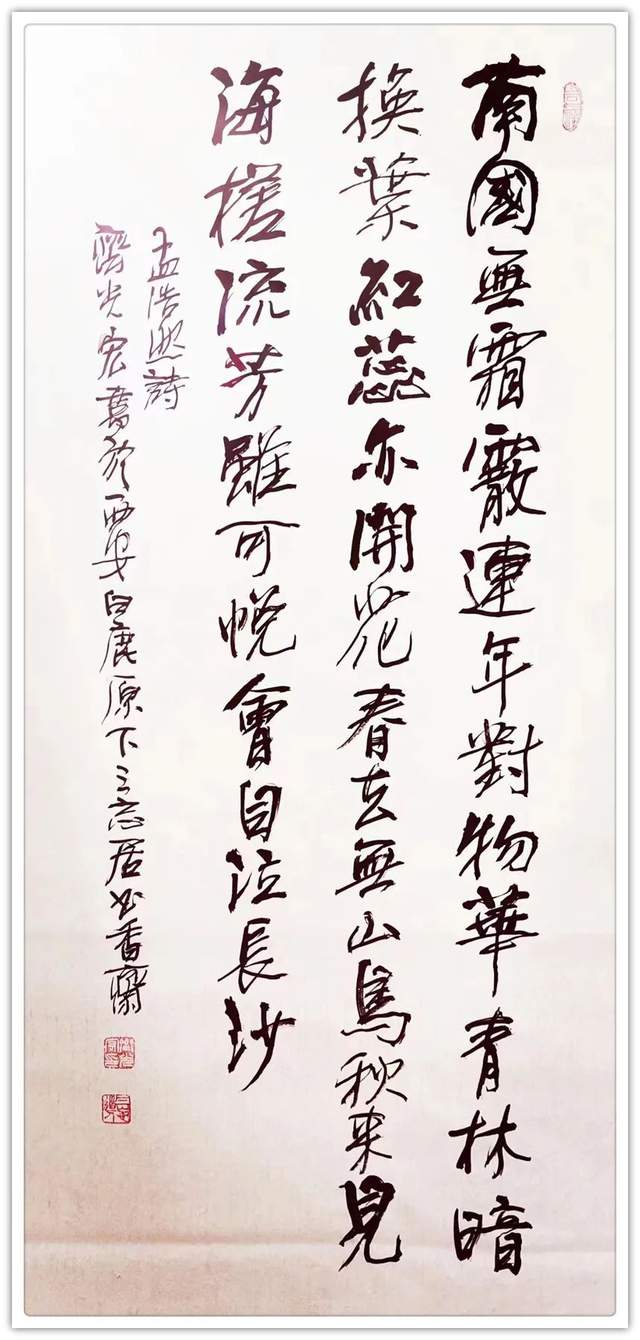 南國無霜霰連年對物華青林暗
換葉紅蕊亦開花春去無山鳥秋來見
海槎流芳雖可悅會自泣長沙
孟浩然詩
齊光宏書於西安白鹿原下三忘居书香齋